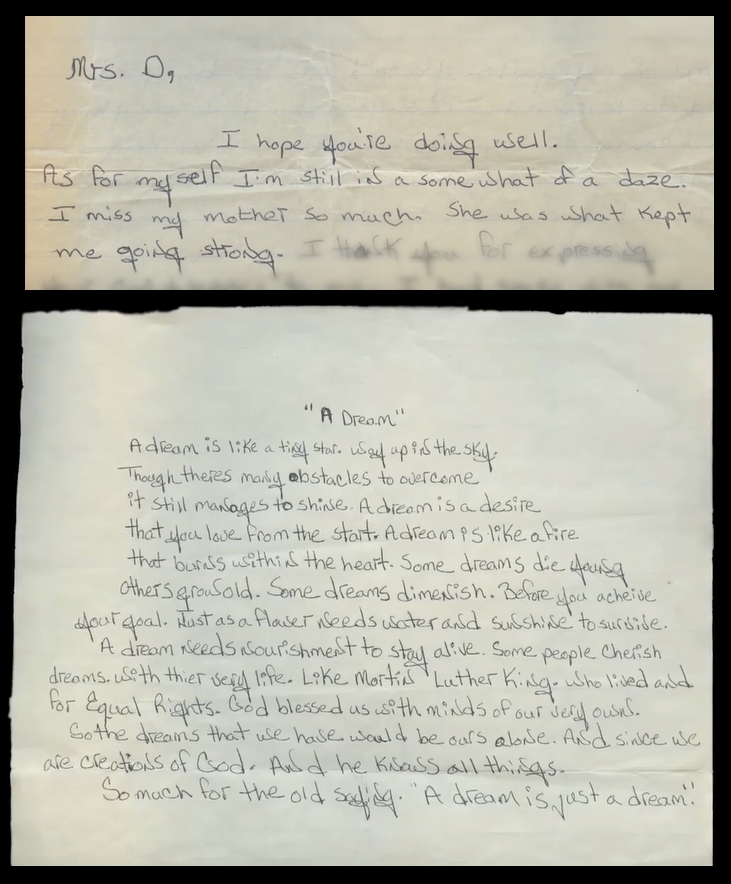 Mrs. D,
I hope you're doing well.
As for my self I'm still in a somewhat of a daze.
I miss my mother so much. She was what kept
me going strong. I thank you for expressing
"A Dream"
A dream is like a tiny star. way up in the sky.
Though theres many obstacles to overcome
it still manages to shine. A dream is a desire
that you love from the start. A dream is like a fire
that burns within the heart. Some dreams die young
others grow old. Some dreams dimenish. Before you acheive
your goal. Just as a flower needs water and sunshine to survive.
A dream needs nourishment to stay alive. Some people cherish
dreams. with thier very life. Like Martin Luther King. who lived and
for Equal Rights. God blessed us with minds of our very owns.
So the dreams that we have would be ours alone. And since we
are creations of God. And he knows all things.
So much for the old saying. "A dream is just a dream"!